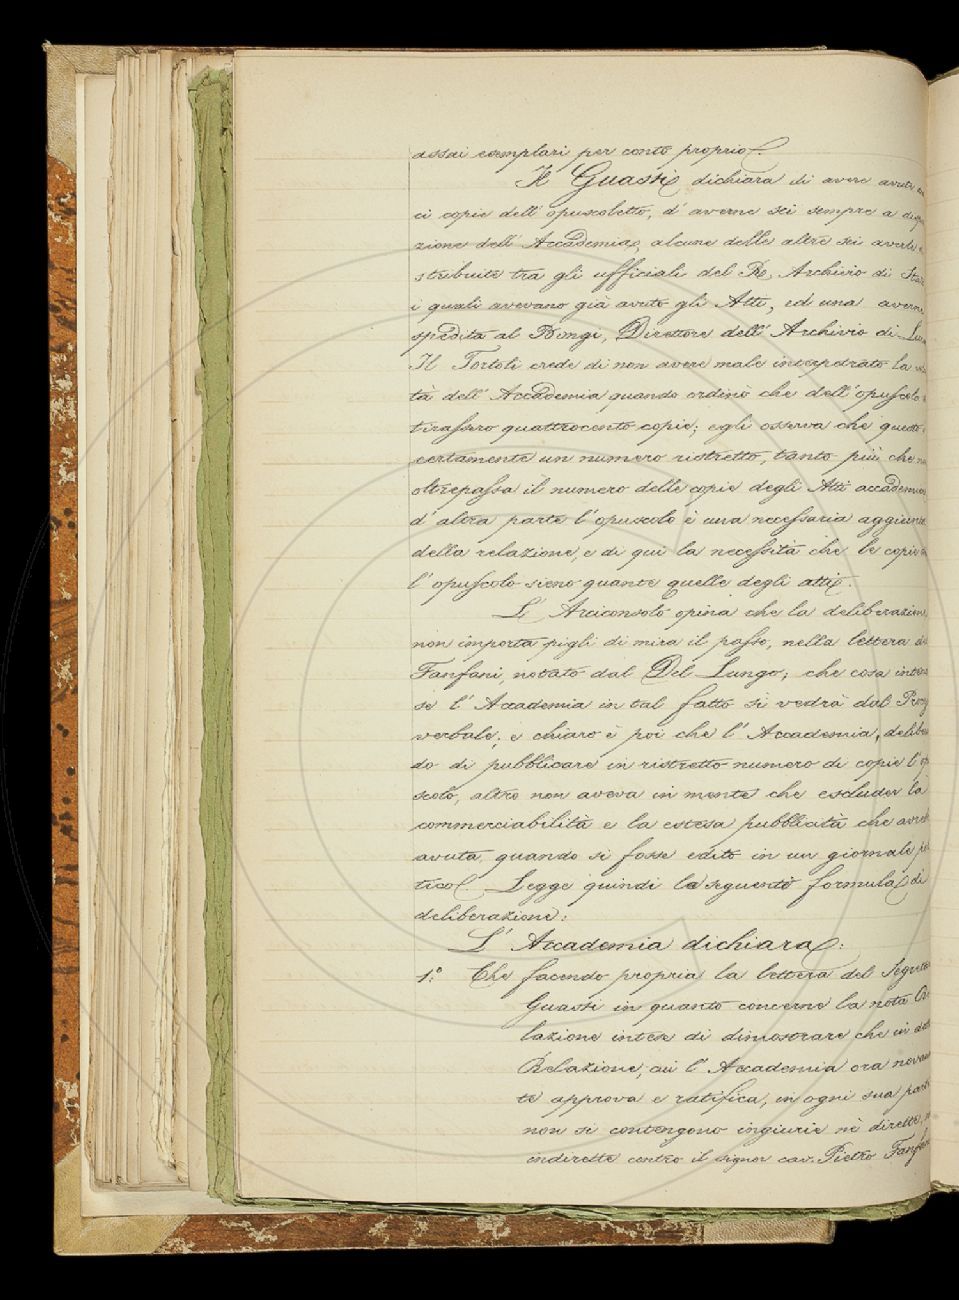 assai esemplari per conto proprio.
Il Guasti dichiara di avere avute
ci copie dell' opuscoletto, d' averne sei sempre a dispo
zione dell' Accademia, alcune delle altre sei averle
stribuite tra gli ufficiali del R. Archivio di Stato
i quali avevano già avuto gli Atti, ed una averne
spedita al Bongi, Direttore dell' Archivio di Luc
Il Tortoli crede di non avere male interpetrato la vo
tà dell' Accademia quando ordinò che dell' opuscolo
tirassero quattrocento copie; egli osserva che questo
certamente un numero ristretto, tanto più che no
oltrepassa il numero delle copie degli Atti accademici
d' altra parte l' opuscolo è una necessaria aggiunta
della relazione, e di qui la necessità che le copie
l' opuscolo sieno quante quelle degli atti.
L' Arciconsolo opina che la deliberazione
non importa pigli di mira il passo, nella lettera del
Fanfani, notato dal Del Lungo; che cosa intes
se l' Accademia in tal fatto si vedrà dal Proc
verbale; e chiaro è poi che l' Accademia, delibe
do di pubblicare in ristretto numero di copie l' op
scolo, altro non aveva in mente che escluder la
commerciabilità e la estesa pubblicità che avreb
avuta, quando si fosse edito in un giornale poli
tico. Legge quindi la seguente formula di
deliberazione:
L' Accademia dichiara:
1.° Che facendo propria la lettera del Segreta
Guasti in quanto concerne la nota Re
lazione intese di dimostrare che in detta
Relazione, cui l' Accademia ora novam
te approva e ratifica, in ogni sua parte
non si contengono ingiurie nè dirette, nè
indirette contro il signor cav. Pietro Fanfani